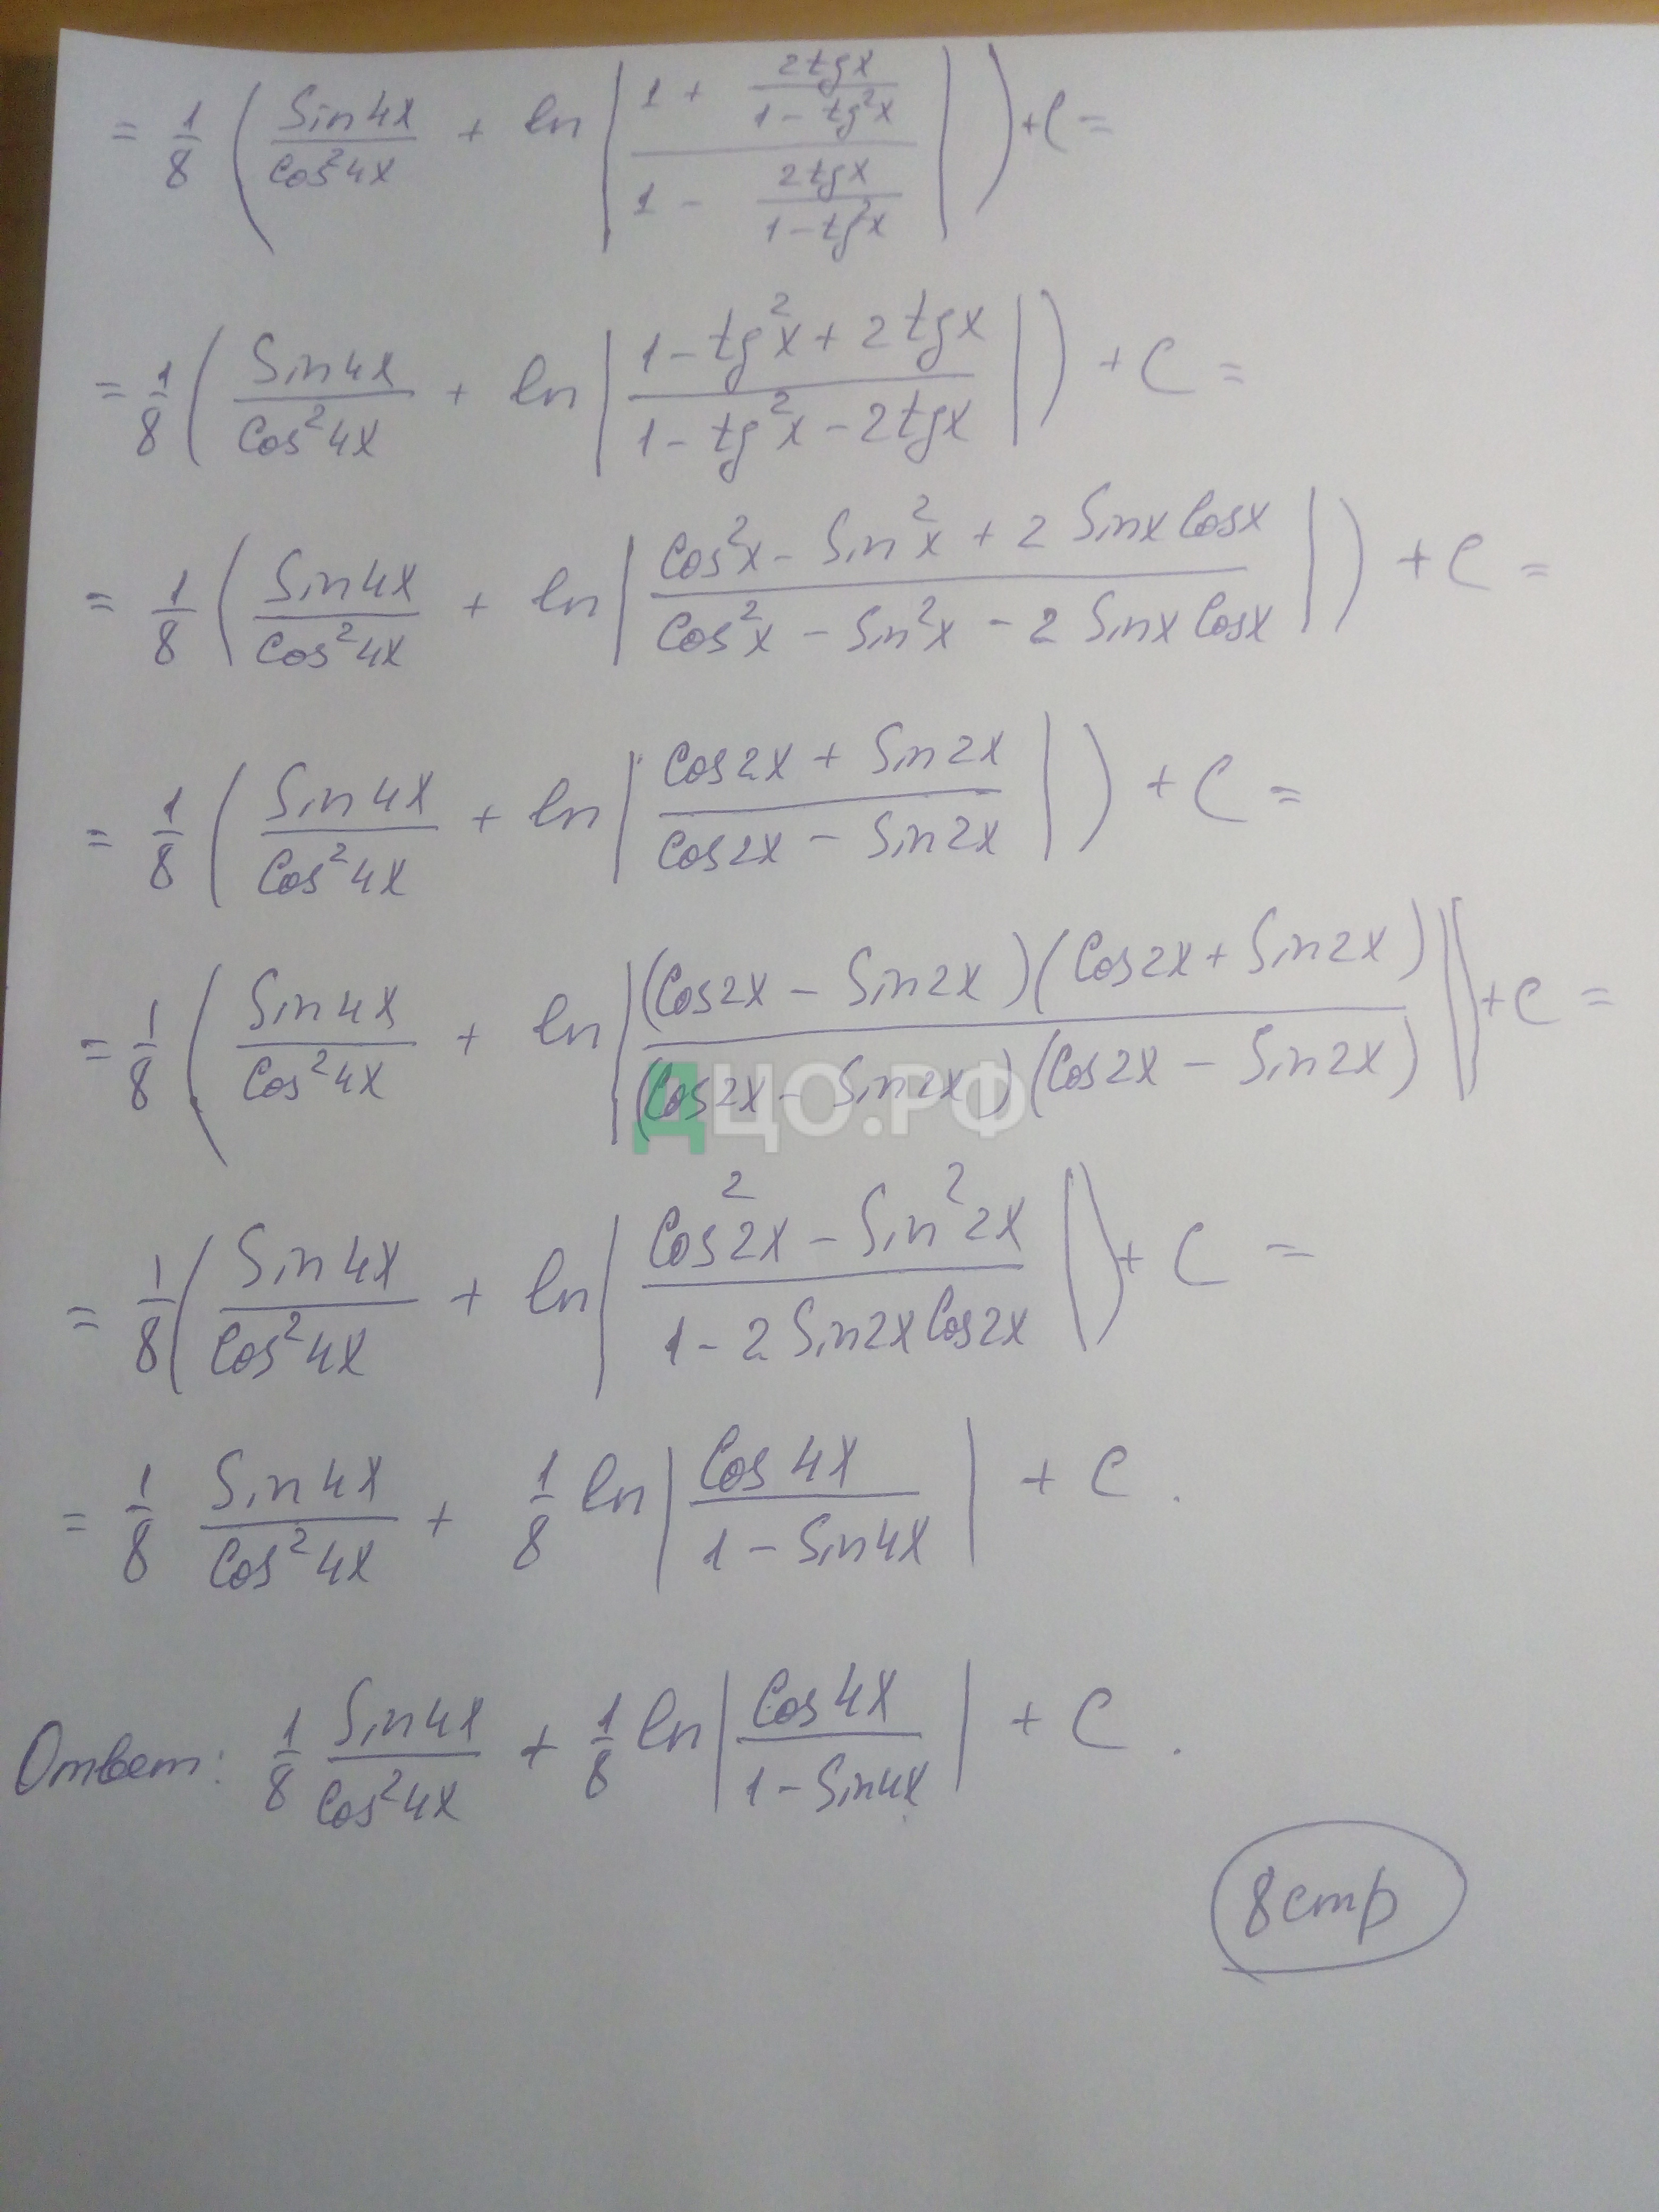 = 1/8 ( Sin4x / Cos²4x + ln | (1 + 2tgx / (1 - tg²x)) / (1 - 2tgx / (1 - tg²x)) | ) + C =
= 1/8 ( Sin4x / Cos²4x + ln | (1 - tg²x + 2tgx) / (1 - tg²x - 2tgx) | ) + C =
= 1/8 ( Sin4x / Cos²4x + ln | (Cos²x - Sin²x + 2 Sinx Cosx) / (Cos²x - Sin²x - 2 Sinx Cosx) | ) + C =
= 1/8 ( Sin4x / Cos²4x + ln | (Cos2x + Sin2x) / (Cos2x - Sin2x) | ) + C =
= 1/8 ( Sin4x / Cos²4x + ln | (Cos2x - Sin2x)(Cos2x + Sin2x) / (Cos2x - Sin2x)(Cos2x - Sin2x) | ) + C =
ДЦО.РФ
= 1/8 ( Sin4x / Cos²4x + ln | (Cos²2x - Sin²2x) / (1 - 2 Sin2x Cos2x) | ) + C =
= 1/8 Sin4x / Cos²4x + 1/8 ln | Cos4x / (1 - Sin4x) | + C .
Ответ: 1/8 Sin4x / Cos²4x + 1/8 ln | Cos4x / (1 - Sin4x) | + C .
8 стр